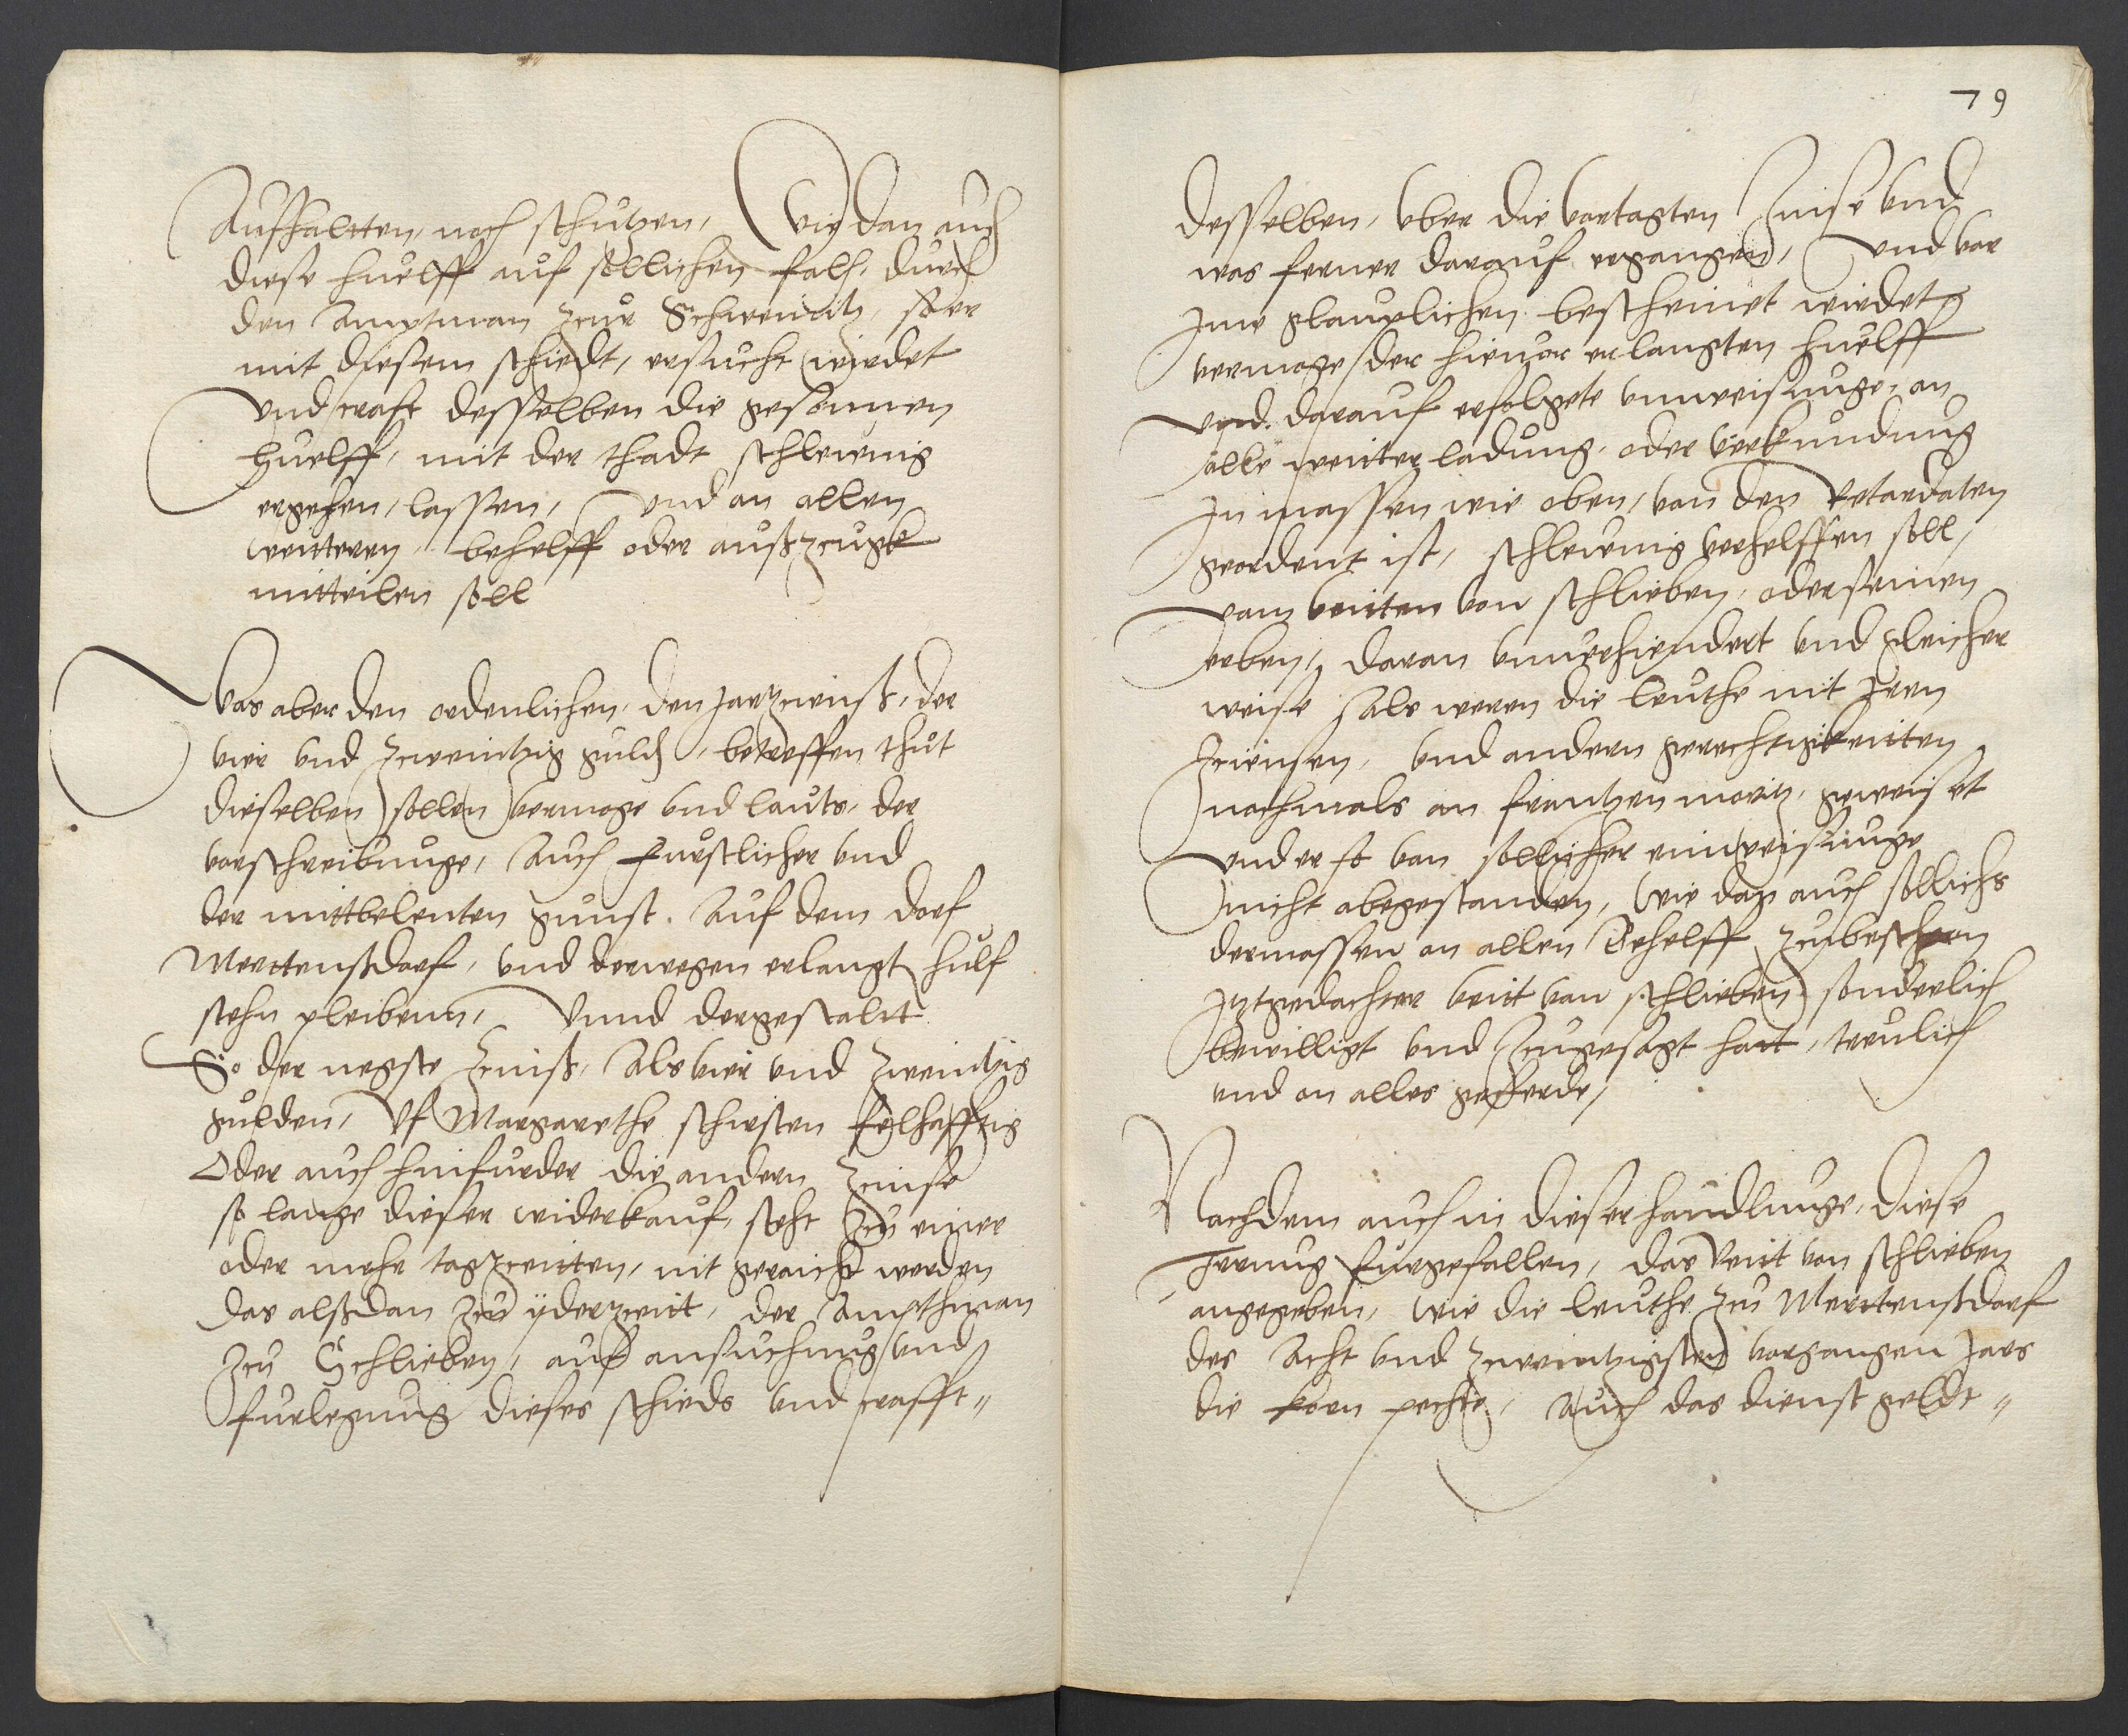 Auffhaltten, noch schutzen, Wie dan auch
diese huelff auf sollichen falh, durch
den Amptman zcur Schweinitz, so er
mit diesem schiedt, ersucht wirdet
Vnd craft desselben die gesonnen
huelff, mit der thadt schleunig
ergehen, lassen, Vnd an allen
weittern, behelff oder außzcugk
mitteilen soll
Was aber den ordenlichen, den Jarzcinß, der
vier vnd zcweintzig guld, betreffen thut
dieselben sollen vermoge vnd lauts, der
vorschreibunge, Auch furstlicher vnd
der mittbelenten gunst. Auf dem dorf
Merttenßdorf, vnd derwegen erlangt hulf
stehn pleibenn, Vnnd dergestaltt
So der negste Zcinß, Als vier vnd zweintzig
gulden, Vf Margarethe schirsten felhafftig
Oder auch hinfurder die andern Zcinse
so lange dieser widerkauf, steht Zcu einer
oder mehr tagzceitten, nit geraicht werden
das alßdan Zcu yderzceitt, der Ampthman
Zcu Schlieben, auf ansuchung vnd
furlegung dieses schieds vnd crafft
79
desselben, vber die vortagten Zcinse vnd
was ferner darauf ergangen, Vnd vor
Ime glauplichen bescheinet wirdet
vermoge der hieuor erlangten huelff
Vnd darauf erfolgete einweisunge, an
alle weitter ladung, oder verkundung
In massen wie oben, van den Retardaten
geordent ist, schleunig verhelffen soll,
vam veitten von schlieben, oder seinen
erben, daran vnuerhiendert vnd gleicher
weise Als weren die leuthe mit Iren
Zcinsen, vnd andern gerechtigkeitten
nochmals an frantzen moritz, geweiset
Vnd er so van sollicher einweisunge
nicht abgestanden, wie dan auch sollichs
dermassen an allen Behelff Zcubeschern
Itztgedachter veitt van schlieben sonderlich
bewilligt vnd Zcugesagt hatt, treulich
vnd an alles geferde,
Nachdem auch in dieser handlunge, diese
Irrung furgefallen, das Veitt von schlieben
angegeben, wie die leuthe Zcu Merttenßdorf
des Acht vnd Zcweintzigsten vorgangen Jars
die korn pechte, Auch das dienst geldt